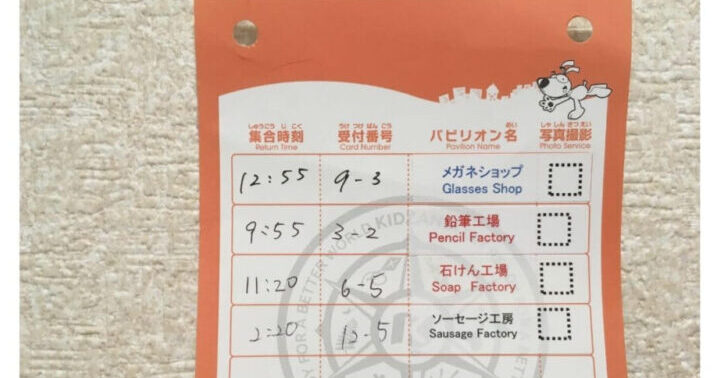 しゅうごう じ こく うけ つけ ばん ごう めい しゃ しん さつ えい
集合時刻 受付番号 パビリオン名 写真撮影
Return Time Card Number Pavilion Name Photo Service
12:55 9-3 メガネショップ
Glasses Shop
9:55 3-2 鉛筆工場
Pencil Factory
11:20 6-5 石けん工場
Soap Factory
2:20 12-5 ソーセージ工房
Sausage Factory
FOR A BETTER WORLD KIDZAN